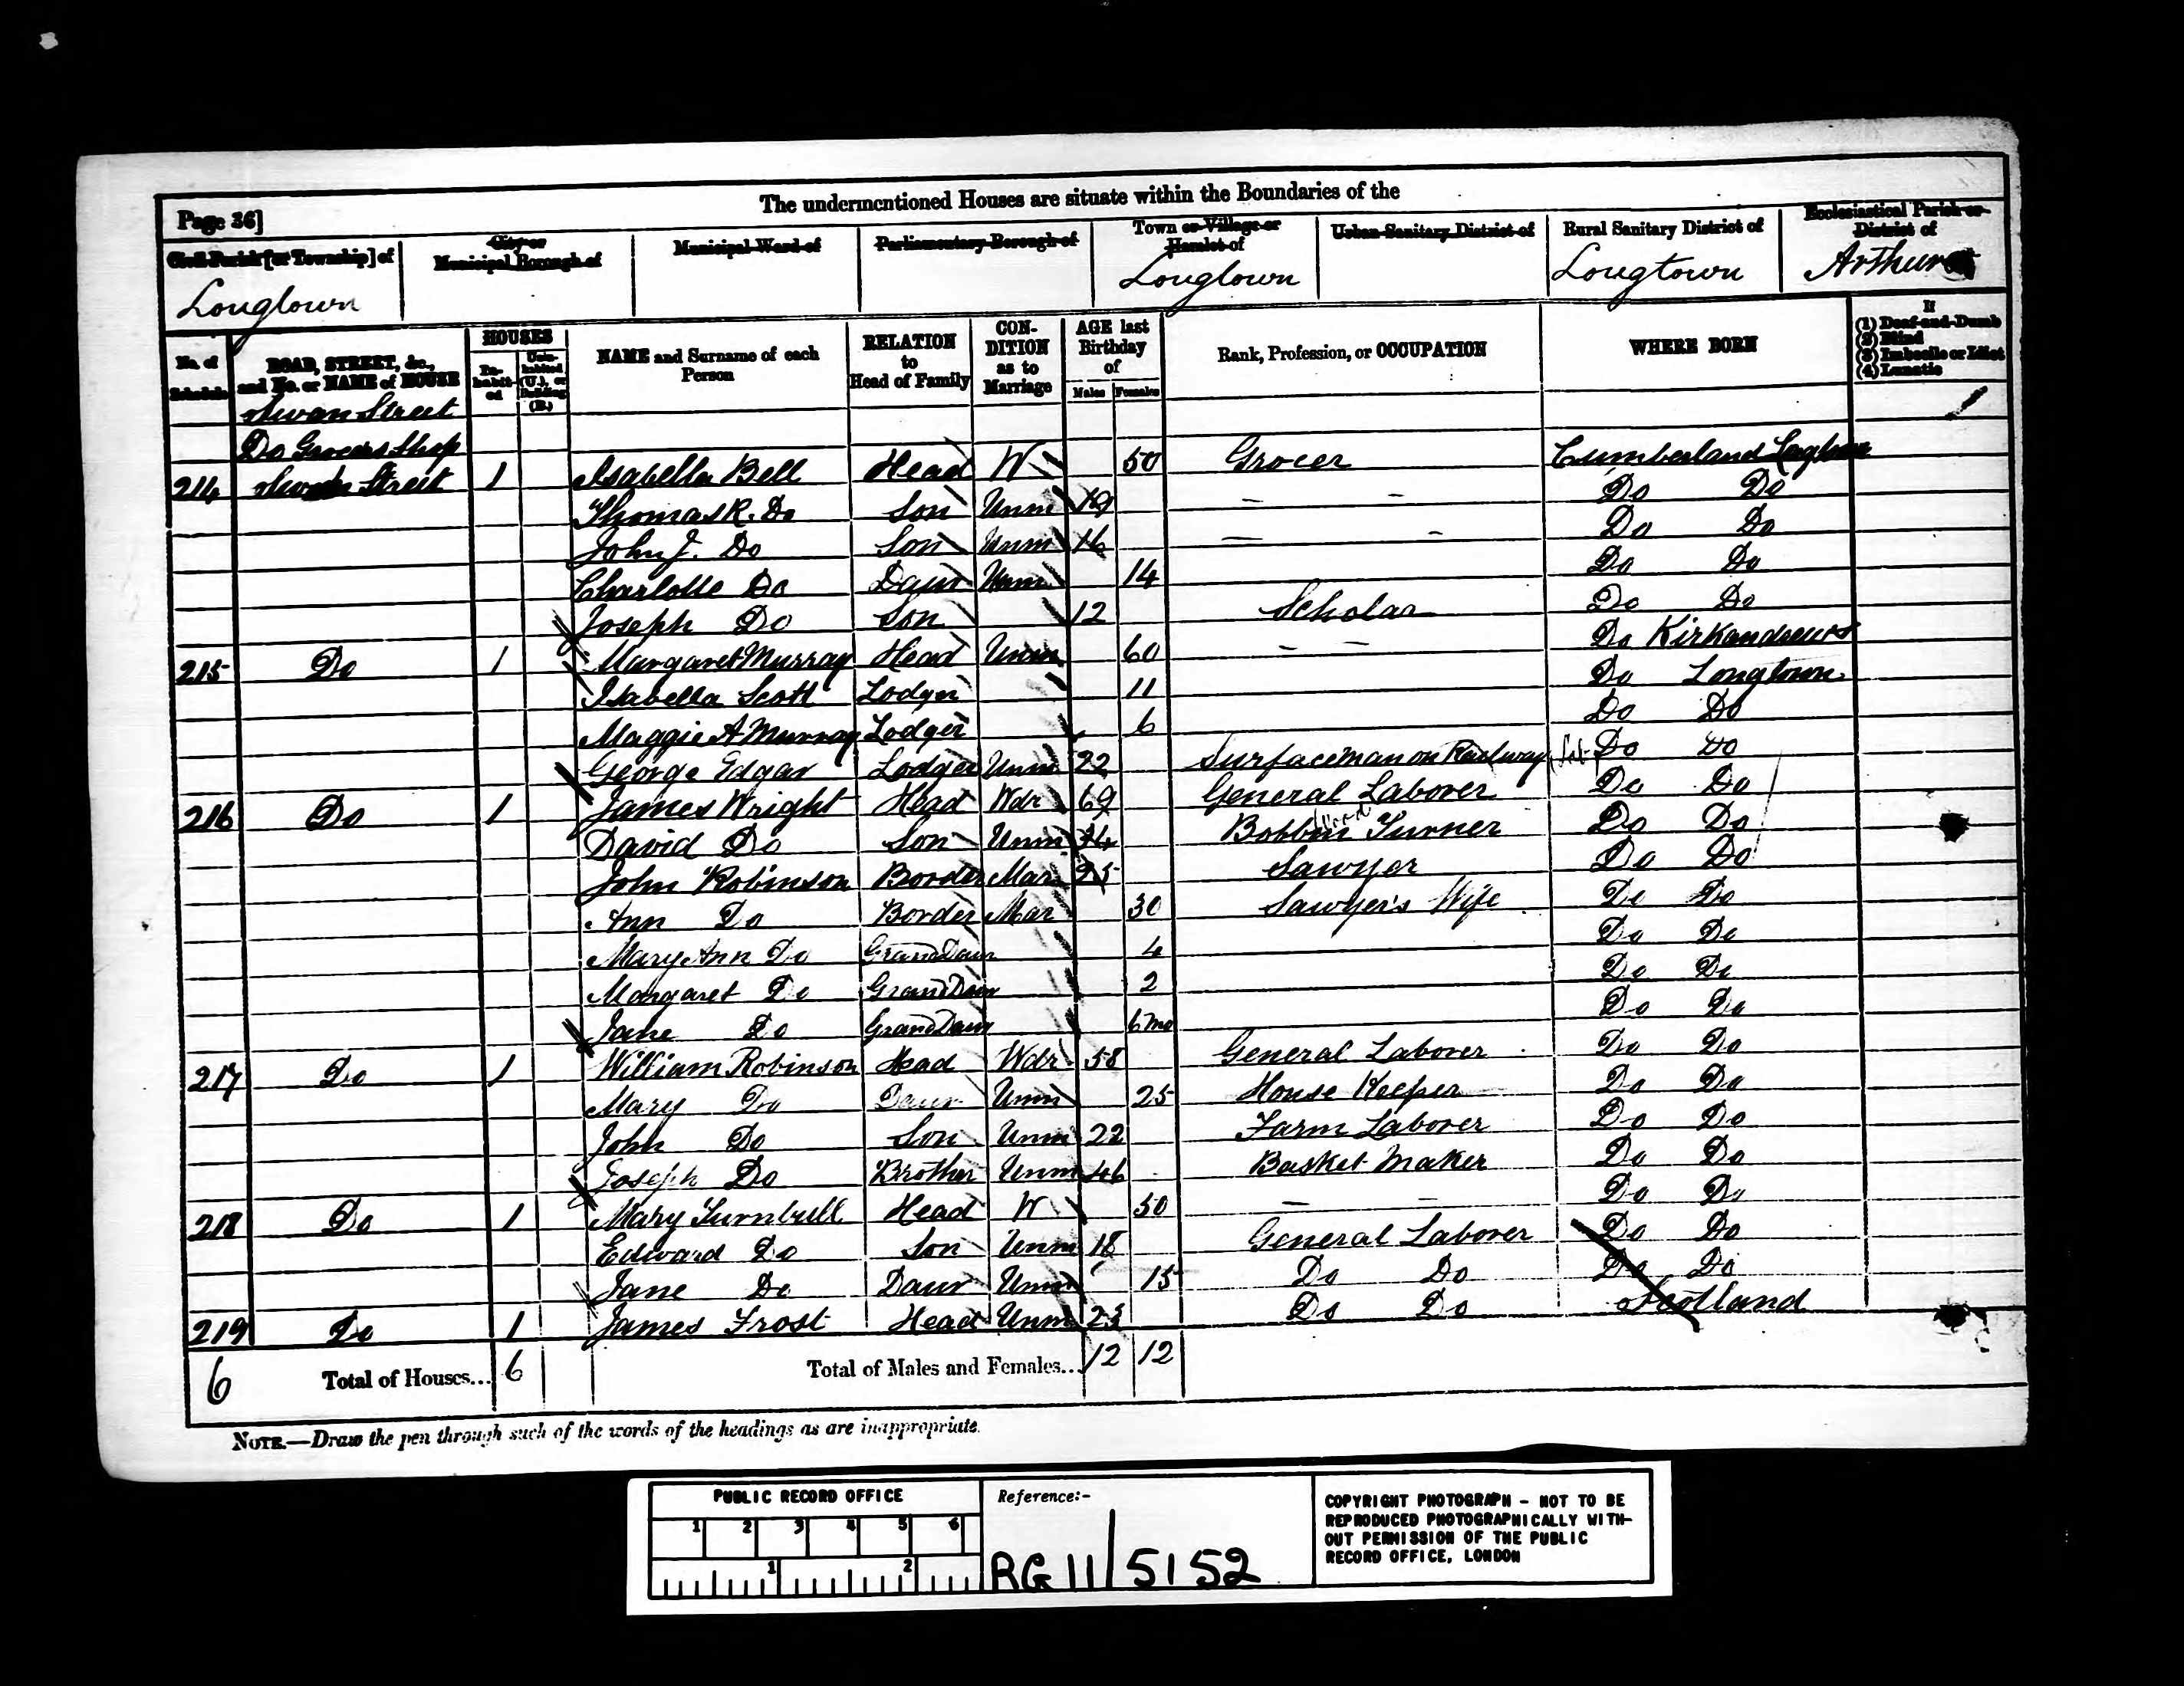 The undermentioned Houses are situate within the Boundaries of the
Page 36]
Civil Parish [or Township] of
City or Municipal Borough of
Municipal Ward of
Parliamentary Borough of
Town or Village or Hamlet of
Urban Sanitary District of
Rural Sanitary District of
Ecclesiastical Parish or District of
Longtown Longtown Longtown Arthuret
No. of Schedule
ROAD, STREET, &c., and No. or NAME of HOUSE
HOUSES
In-habit-ed
Unin-habited (U.), or Building (B.)
NAME and Surname of each Person
RELATION to Head of Family
CON-DITION as to Marriage
AGE last Birthday of
Males Females
Rank, Profession, or OCCUPATION
WHERE BORN
If
(1) Deaf-and-Dumb
(2) Blind
(3) Imbecile or Idiot
(4) Lunatic
Swan Street
Do Grocers Shop
214 Swan Street 1 Isabella Bell Head W 50 Grocer Cumberland Longtown
Thomas R. Do Son Unm 19 Do Do
John J. Do Son Unm 16 Do Do
Charlotte Do Daur Unm 14 Do Do
Joseph Do Son 12 Scholar Do Do
215 Do 1 Margaret Murray Head Unm 60 Do Kirkandrews
Isabella Scott Lodger 11 Do Longtown
Maggie A Murray Lodger 6 Do Do
George Edgar Lodger Unm 22 Surfaceman on Railway Do Do
216 Do 1 James Wright Head Wdr 69 General Laborer Do Do
David Do Son Unm 34 Bobbin Turner Do Do
John Robinson Border Mar 25 Sawyer Do Do
Ann Do Border Mar 30 Sawyer's Wife Do Do
Mary Ann Do GrandDaur 4 Do Do
Margaret Do GrandDaur 2 Do Do
Jane Do GrandDaur 6 mo Do Do
217 Do 1 William Robinson Head Wdr 58 General Laborer Do Do
Mary Do Daur Unm 25 House Keeper Do Do
John Do Son Unm 22 Farm Laborer Do Do
Joseph Do Brother Unm 46 Basket Maker Do Do
218 Do 1 Mary Turnbull Head W 50 Do Do
Edward Do Son Unm 18 General Laborer Do Do
Jane Do Daur Unm 15 Do Do Do Do
219 Do 1 James Frost Head Unm 23 Do Do Scotland
6 Total of Houses... 6 Total of Males and Females... 12 12
NOTE.—Draw the pen through such of the words of the headings as are inappropriate.
PUBLIC RECORD OFFICE
1 2 3 4 5 6
1 2
Reference:-
RG 11 / 5152
COPYRIGHT PHOTOGRAPH - NOT TO BE
REPRODUCED PHOTOGRAPHICALLY WITH-
OUT PERMISSION OF THE PUBLIC
RECORD OFFICE, LONDON